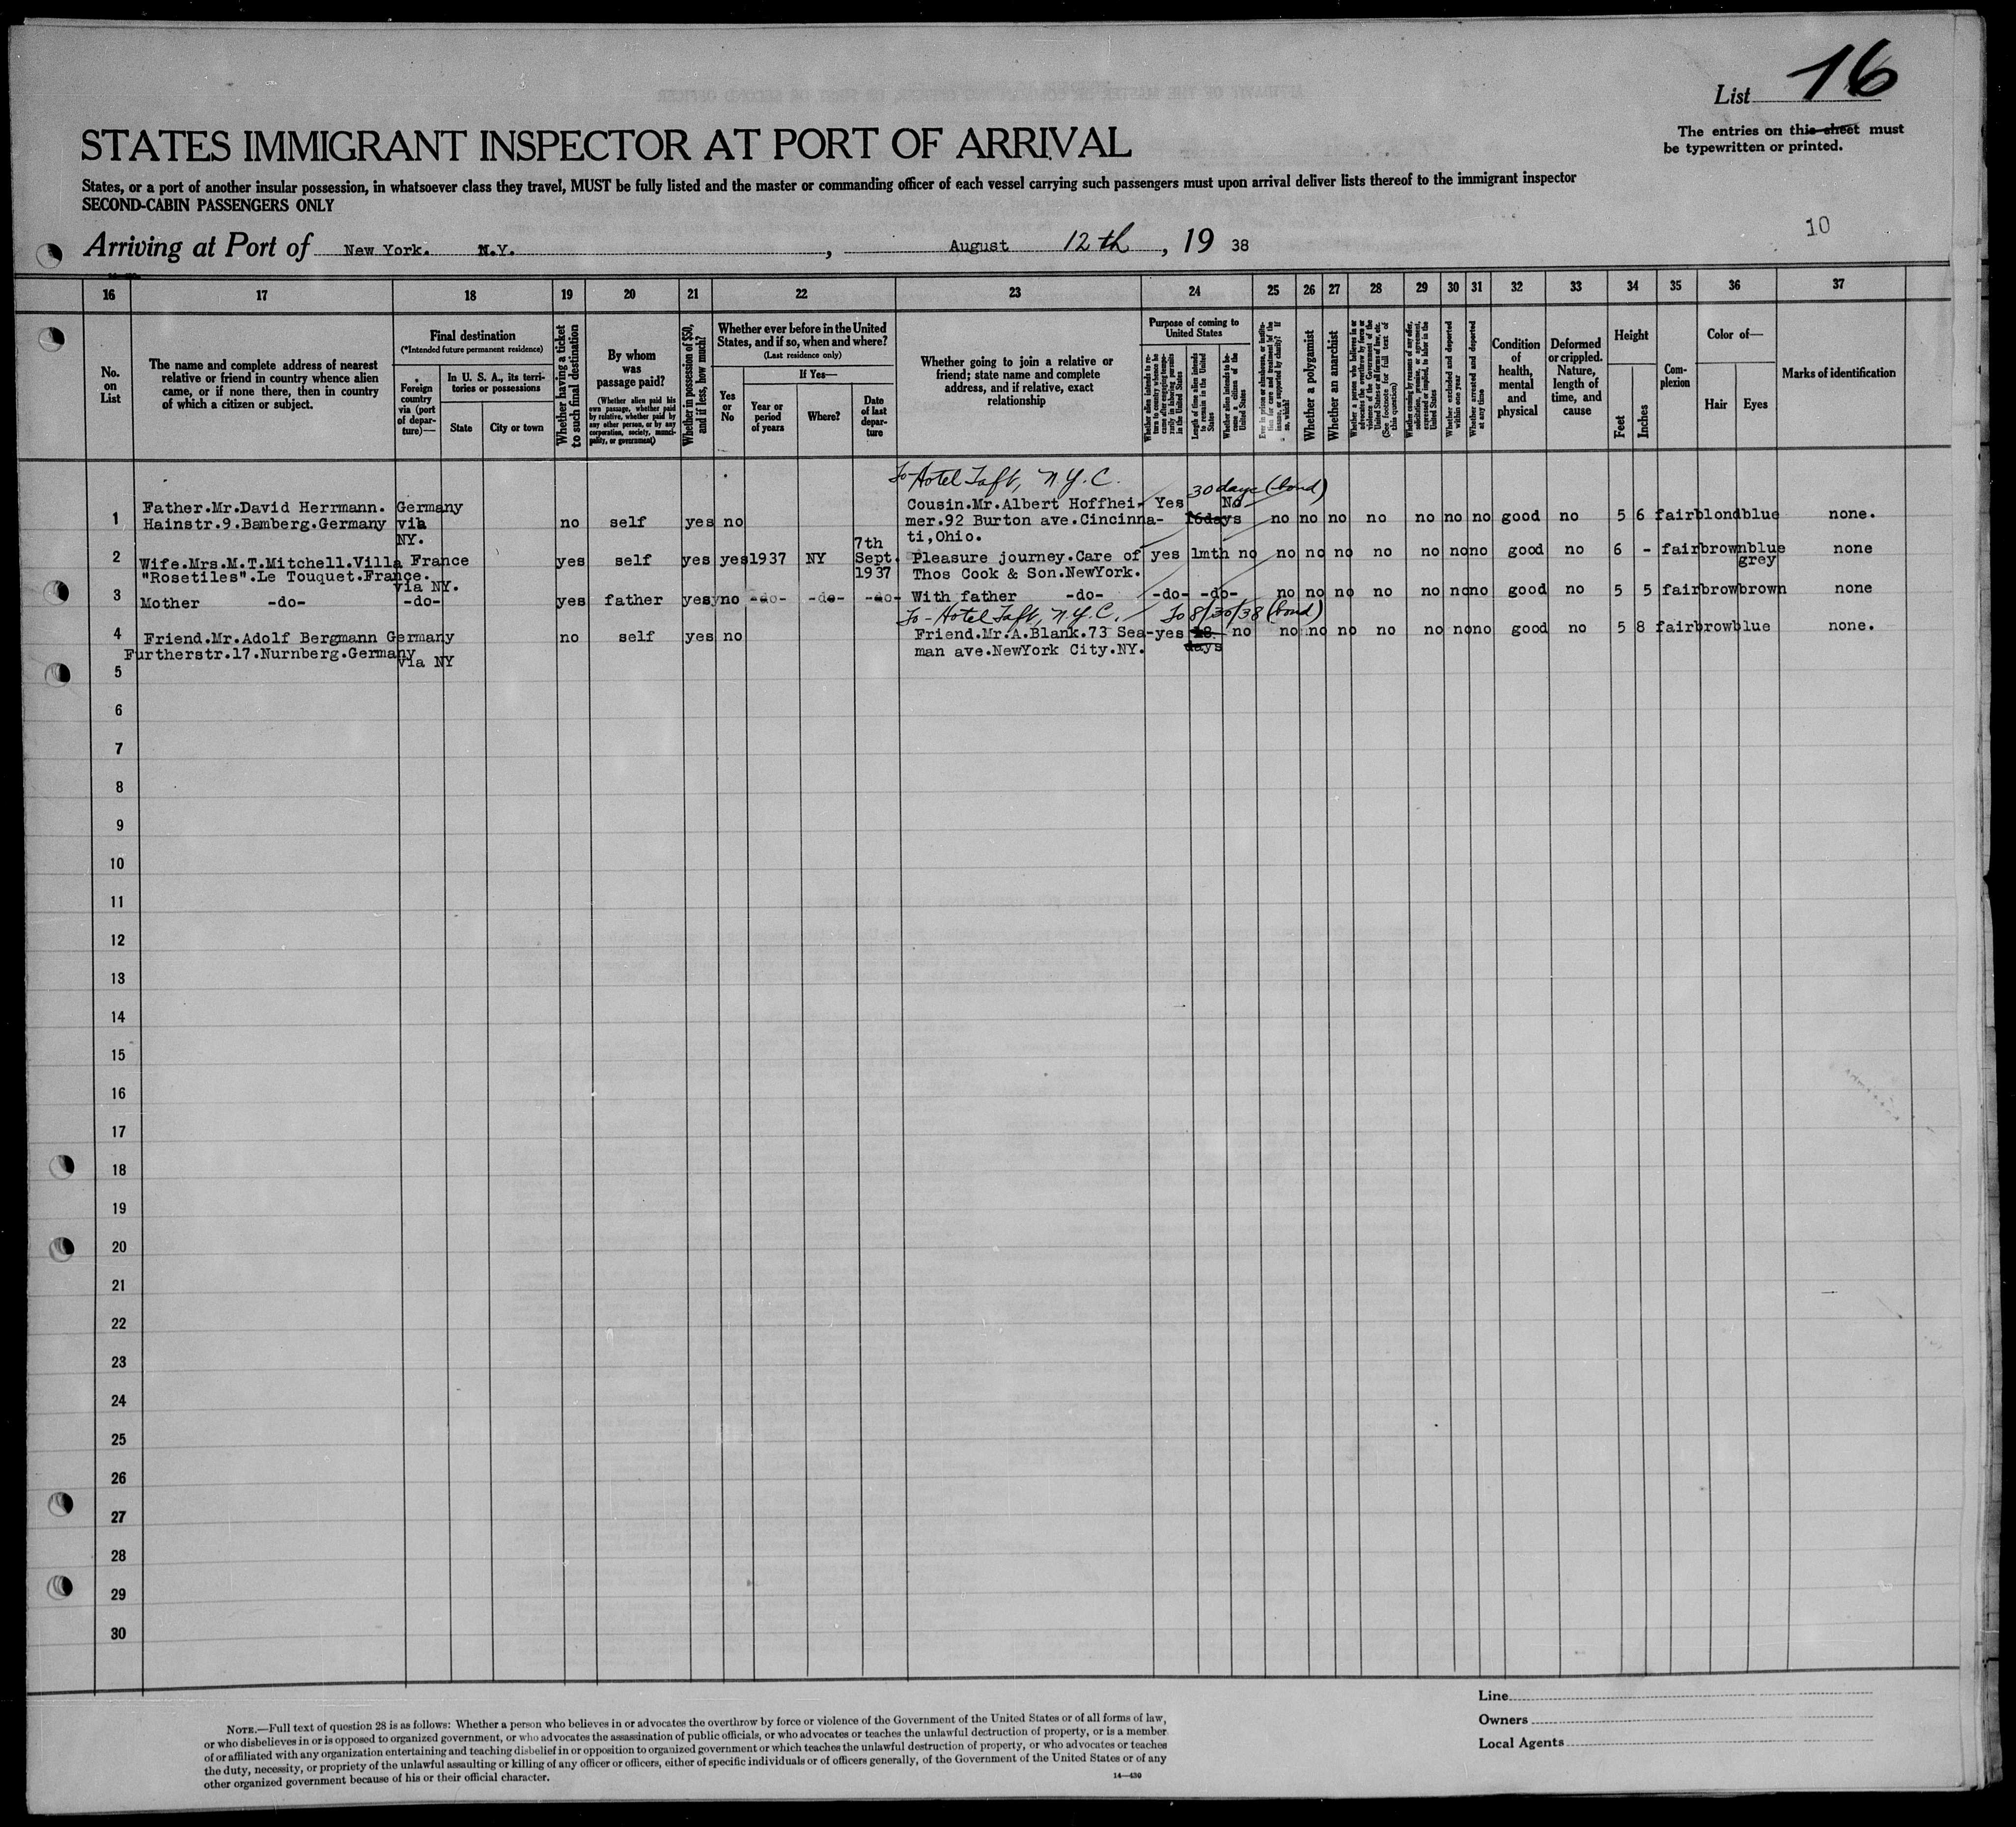 List 16
The entries on this sheet must
be typewritten or printed.
STATES IMMIGRANT INSPECTOR AT PORT OF ARRIVAL
States, or a port of another insular possession, in whatsoever class they travel, MUST be fully listed and the master or commanding officer of each vessel carrying such passengers must upon arrival deliver lists thereof to the immigrant inspector
SECOND-CABIN PASSENGERS ONLY
10
Arriving at Port of New York. N.Y. , August 12th, 19 38
16 17 18 19 20 21 22 23 24 25 26 27 28 29 30 31 32 33 34 35 36 37
No.
on
List
The name and complete address of nearest
relative or friend in country whence alien
came, or if none there, then in country
of which a citizen or subject.
Final destination
(*Intended future permanent residence)
*
Foreign
country
via (port
of depar-
ture)—
In U. S. A., its terri-
tories or possessions
State
City or town
Whether having a ticket
to such final destination
By whom
was
passage paid?
(Whether alien paid his
own passage, whether paid
by relative, whether paid by
any other person, or by any
corporation, society, munici-
pality, or government)
Whether in possession of $50,
and if less, how much?
Whether ever before in the United
States, and if so, when and where?
(Last residence only)
Yes
or
No
If Yes—
Year or
period
of years
Where?
Date
of last
depar-
ture
Whether going to join a relative or
friend; state name and complete
address, and if relative, exact
relationship
Purpose of coming to
United States
Whether alien intends to re-
turn to country whence he
came after engaging tempo-
rarily in laboring pursuits
in the United States
Length of time alien intends
to remain in the United
States
Whether alien intends to be-
come a citizen of the
United States
Ever in prison or almshouse, or institu-
tion for care and treatment of the
insane, or supported by charity? If
so, which?
Whether a polygamist
Whether an anarchist
Whether a person who believes in or
advocates the overthrow by force or
violence of the Government of the
United States or all forms of law, etc.
(See footnote for full text of
this question)
Whether coming by reason of any offer,
solicitation, promise, or agreement,
expressed or implied, to labor in the
United States
Whether excluded and deported
within one year
Whether arrested and deported
at any time
Condition
of
health,
mental
and
physical
Deformed
or crippled.
Nature,
length of
time, and
cause
Height
Feet
Inches
Com-
plexion
Color of—
Hair
Eyes
Marks of identification
To Hotel Taft, N.Y.C. 30 days (bond)
Father.Mr.David Herrmann. Germany Cousin.Mr.Albert Hoffhei- Yes No
1 Hainstr.9.Bamberg.Germany via no self yes no mer.92 Burton ave.Cincinna- 16days no no no no no no no good no 5 6 fair blond blue none.
NY. ti,Ohio.
2 Wife.Mrs.M.T.Mitchell.Villa France yes self yes yes 1937 NY 7th Sept. 1937 Pleasure journey.Care of yes 1mth no no no no no no no no good no 6 - fair brown blue grey none
"Rosetiles".Le Touquet.France. via NY. Thos Cook & Son.NewYork.
3 Mother -do- -do- yes father yes no -do- -do- -do- With father -do- -do- -do- no no no no no no no good no 5 5 fair brow brown none
To - Hotel Taft, N.Y.C. To 8/30/38 (bond)
4 Friend.Mr.Adolf Bergmann Germany no self yes no Friend.Mr.A.Blank.73 Sea- yes 18 no no no no no no no no good no 5 8 fair brow blue none.
Furtherstr.17.Nurnberg.Germany via NY man ave.NewYork City.NY. days
5
6
7
8
9
10
11
12
13
14
15
16
17
18
19
20
21
22
23
24
25
26
27
28
29
30
Line
Owners
Local Agents
NOTE.—Full text of question 28 is as follows: Whether a person who believes in or advocates the overthrow by force or violence of the Government of the United States or of all forms of law,
or who disbelieves in or is opposed to organized government, or who advocates the assassination of public officials, or who advocates or teaches the unlawful destruction of property, or is a member
of or affiliated with any organization entertaining and teaching disbelief in or opposition to organized government or which teaches the unlawful destruction of property, or who advocates or teaches
the duty, necessity, or propriety of the unlawful assaulting or killing of any officer or officers, either of specific individuals or of officers generally, of the Government of the United States or of any
other organized government because of his or their official character.
14—430